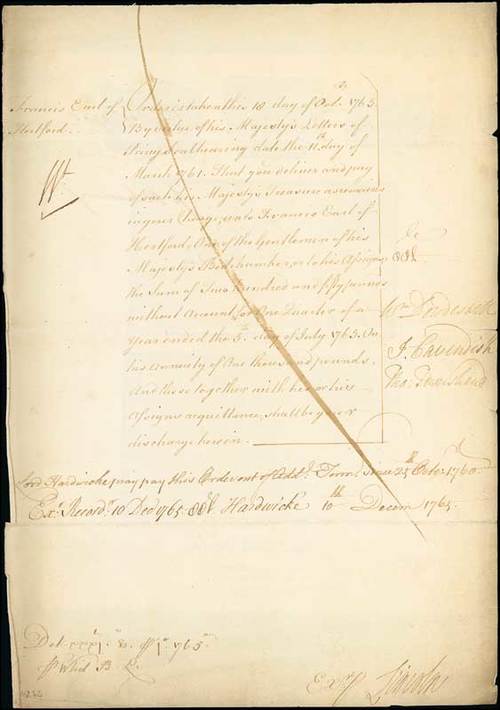 Francis Earl of
Hertford.
Order is taken this 18 day of Octr. 1765
By virtue of his Majesty's Letters of
Privy Seal bearing date the 11th day of
March 1761. That you deliver and pay
of such his Majesty's Treasure as remains
in your Charge, unto Francis Earl of
Hertford, One of the Gentlemen of his
Majesty's Bedchamber, or to his Assigns
the Sum of Two Hundred and fifty pounds
without Account, for One Quarter of a
Year ended the 5th day of July 1765. On
his annuity of One thousand pounds.
And these together with his or his
Assigns acquittance, shall be your
discharge herein.
Wm Dowdeswell
J. Cavendish
Tho. Townshend
Lord Hardwicke pay this Order out of Since 25 Octr. 1760.
Exr. Record. 10 Dec 1765 Hardwicke 10th Decem 1765.
1765
Exr
Lincoln